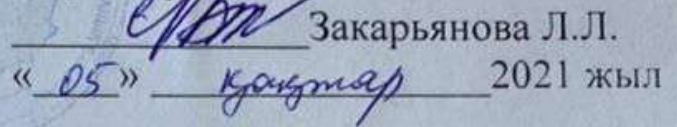 Закарьянова Л.Л.
« 05 » қаңтар 2021 жыл